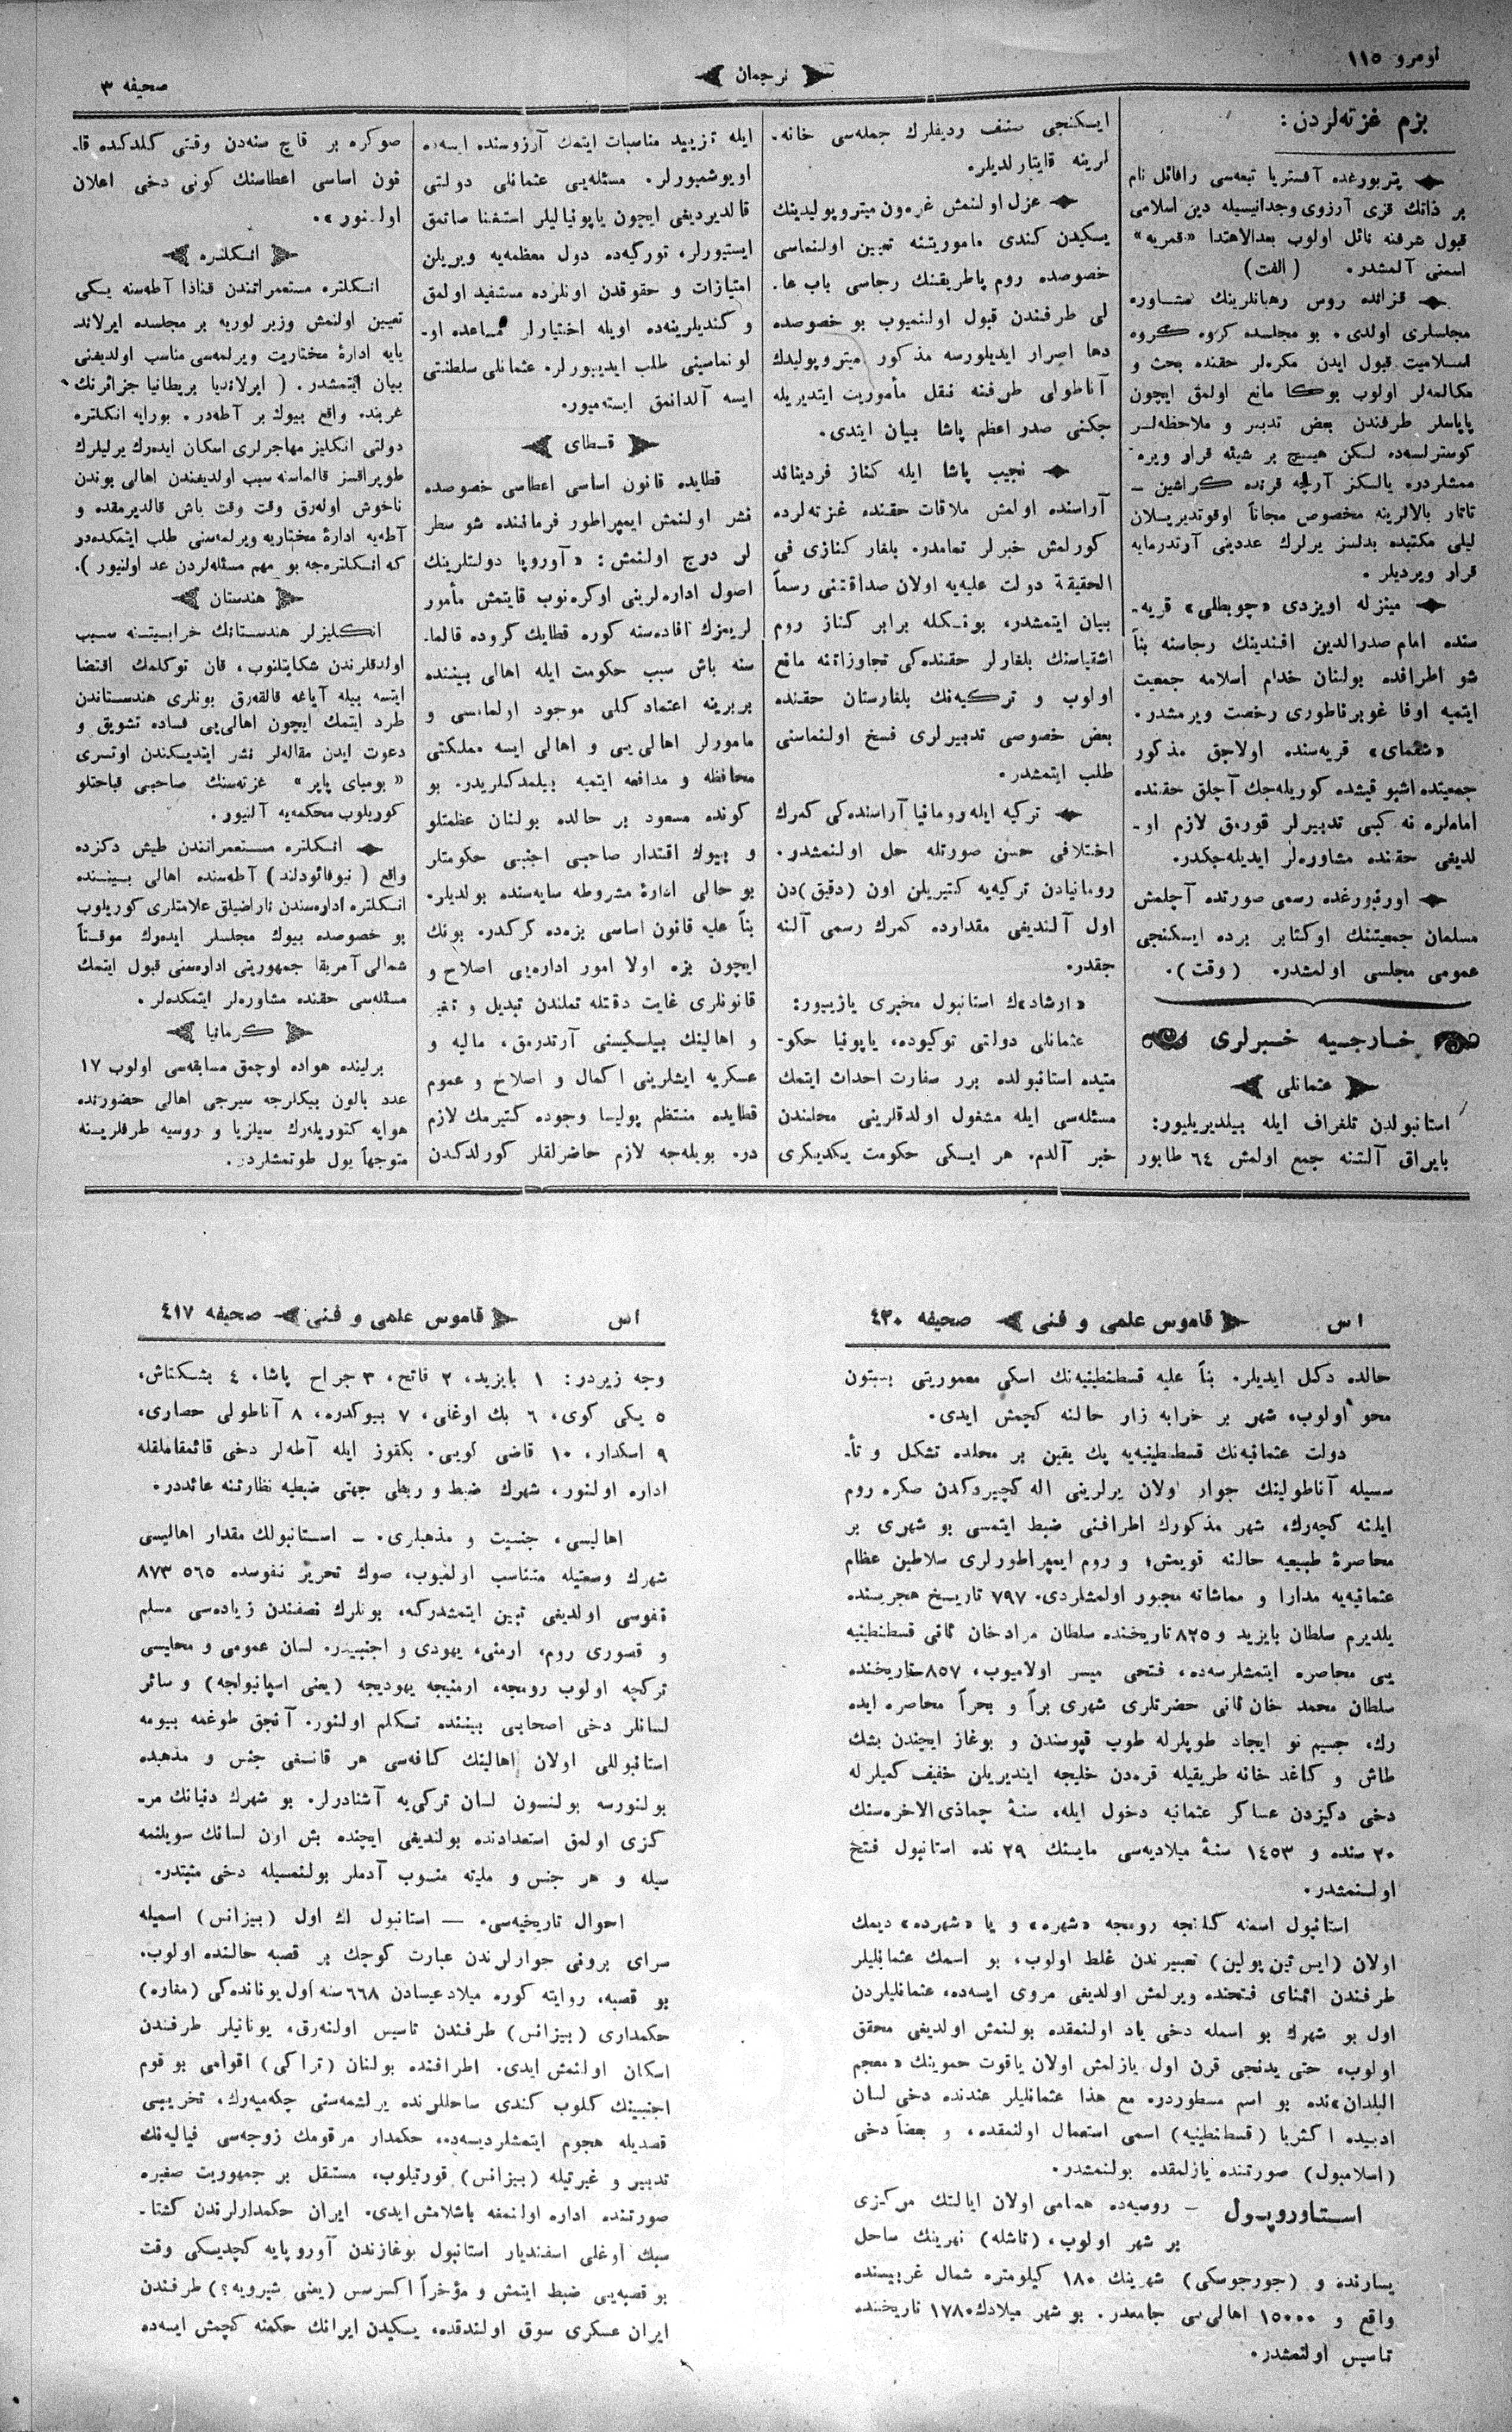 نومرو ١١٥
ترجمان
صحيفه ٣
بزم غزته‌لردن:
پتربورغده آفستريا تبعه‌سى رافائل نام
بر ذاتك قزى آرزوى وجدانيسيله دين اسلامى
قبول شرفنه نائل اولوب بعدالاهتدا «قمريه»
اسمنى آلمشدر. (الفت)
قزانده روس رهبانلرينك مشاوره
مجلسلرى اولدى. بو مجلسده كروه كروه
اسلاميت قبول ايدن مكره‌لر حقنده بحث و
مكالمه‌لر اولوب بوكا مانع اولمق ايچون
پاپاسلر طرفندن بعض تدبير و ملاحظه‌لر
كوسترلسه‌ده لكن هيچ بر شيئه قرار ويره‌
ممشلردر. يالكز آرلچه قرنده كراشين –
تاتار بالالرينه مخصوص مجاناً اوقوتديريلان
ليلى مكتبده بدلسز يرلرك عددينى آرتدرمايه
قرار ويرديلر.
مينزله اويزدى «چوبطلى» قريه‌-
سنده امام صدرالدين افندينك رجاسنه بناً
شو اطرافده بولنان خدام اسلامه جمعيت
ايتميه اوفا غوبرناطورى رخصت ويرمشدر.
«شغماى» قريه‌سنده اولاجق مذكور
جمعيتده اشبو قيشده كوريله‌جك آچلق حقنده
امامله‌ره نه كبى تدبيرلر قورمق لازم او-
لديغى حقنده مشاوره‌لر ايديله‌جكدر.
اورنبورغده رسمى صورتده آچلمش
مسلمان جمعيتنك اوكتابر برده ايكنجى
عمومى مجلسى اولمشدر. (وقت).
خارجيه خبرلرى
عثمانلى
استانبولدن تلغراف ايله بيلديريليور:
بايراق آلتنه جمع اولمش ٦٤ طابور
ايكنجى صنف رديفلرك جمله‌سى خانه-
لرينه قايتارلديلر.
عزل اولنمش غره‌ون ميتروپوليدينك
يسكيدن كندى ماموريتنه تعيين اولنماسى
خصوصده روم پاطريقنك رجاسى باب عا-
لى طرفندن قبول اولنميوب بو خصوصده
دها اصرار ايديلورسه مذكور ميتروپوليدك
آناطولى طرفنه نقل مأموريت ايتديريله
جكنى صدر اعظم پاشا بيان ايتدى.
نجيب پاشا ايله كناز فرديناند
آراسنده اولمش ملاقات حقنده غزته‌لرده
كورلمش خبرلر تمامدر. بلغار كنازى فى
الحقيقة دولت عليه‌يه اولان صداقتنى رسماً
بيان ايتمشدر، بونكله برابر كناز روم
اشقياسنك بلغارلر حقنده‌كى تجاوزاتنه مانع
اولوب و تركيه‌نك بلغارستان حقنده
بعض خصوصى تدبيرلرى فسخ اولنماسنى
طلب ايتمشدر.
تركيه ايله رومانيا آراسنده‌كى كمرك
اختلافى حسن صورتله حل اولنمشدر.
رومانيادن تركيه‌يه كتيريلن اون (دقيق)دن
اول آلنديغى مقدارده كمرك رسمى آلنه
جقدر.
«ارشاد»ك استانبول مخبرى يازيیور:
عثمانلى دولتى توكيوده، ياپونيا حكو-
متيده استانبولده برر سفارت احداث ايتمك
مسئله‌سى ايله مشغول اولدقلرينى محلندن
خبر آلدم. هر ايكى حكومت يكديكرى
ايله تزييد مناسبات ايتمك آرزوسنده ايسه‌ده
اويوشميورلر. مسئله‌يى عثمانلى دولتى
قالديرديغى ايچون ياپونياليلر استغنا صاتمق
ايستيورلر، توركيه‌ده دول معظمه‌يه ويريلن
امتيازات و حقوقدن اونلرده مستفيد اولمق
و كنديلرينه‌ده اويله اختيارلر مساعده او-
لونماسينى طلب ايديیورلر. عثمانلى سلطنتى
ايسه آلدانمق ايسته‌ميور.
قطاى
قطايده قانون اساسى اعطاسى خصوصده
نشر اولنمش ايمپراطور فرماننده شو سطر
لر درج اولنمش: «آوروپا دولتلرينك
اصول اداره‌لرينى اوكره‌نوب قايتمش مأمور
لريمزك افاده‌سنه كوره قطايك كروده قالما-
سنه باش سبب حكومت ايله اهالى بيننده
بربرينه اعتماد كلى موجود اولمامسى و
مامورلر اهالى‌يى و اهالى ايسه مملكتى
محافظه و مدافعه ايتميه بيلمدكلريدر. بو
كونده مسعود بر حالده بولنان عظمتلو
و بيوك اقتدار صاحبى اجنبى حكومتلر
بو حالى ادارهٔ مشروطه سايه‌سنده بولديلر.
بناً عليه قانون اساسى بزه‌ده كركدر. بونك
ايچون بزه اولا امور اداره‌يى اصلاح و
قانونلرى غايت دقتله تملندن تبديل و تغير
و اهالينك بيلكيسنى آرتدرمق، ماليه و
عسكريه ايشلرينى اكمال و اصلاح و عموم
قطايده منتظم پوليسا وجوده كتيرمك لازم
در. بويله‌جه لازم حاضرلقلر كورلدكدن
صوكره بر قاچ سنه‌دن وقتى كلدكده قا-
نون اساسى اعطاسنك كونى دخى اعلان
اولنور».
انكلتره
انكلتره مستعمراتندن قنادا آطه‌سنه يكى
تعيين اولنمش وزير لوريه بر مجلسده ايرلاند
يايه ادارهٔ مختاريت ويرلمه‌سى مناسب اولديغنى
بيان ايتمشدر. (ايرلانديا بريطانيا جزائرنك
غربنده واقع بيوك بر آطه‌در. بورايه انكلتره
دولتى انكليز مهاجرلرى اسكان ايده‌رك يرليلرك
طوپراقسز قالماسنه سبب اولديغندن اهالى بوندن
ناخوش اوله‌رق وقت وقت باش قالديرمقده و
آطه‌يه ادارهٔ مختاريه ويرلمه‌سنى طلب ايتمكده‌در
كه انكلتره‌جه بو مهم مسئله‌لردن عد اولنيور).
هندستان
انكليزلر هندستانك خرابيتنه سبب
اولدقلرندن شكايتلنوب، قان توكلمك اقتضا
ايتسه بيله آياغه قالقه‌رق بونلرى هندستاندن
طرد ايتمك ايچون اهالى‌يى فساده تشويق و
دعوت ايدن مقاله‌لر نشر ايتديكندن اوترى
«بومباى پاپر» غزته‌سنك صاحبى قباحتلو
كوريلوب محكمه‌يه آلنيور.
انكلتره مستعمراتندن طيش دكزده
واقع (نيوفائودلند) آطه‌سنده اهالى بيننده
انكلتره اداره‌سندن ناراضيلق علامتلرى كوريلوب
بو خصوصده بيوك مجلسلر ايده‌رك موقتاً
شمالى آمريقا جمهوريتى اداره‌سنى قبول ايتمك
مسئله‌سى حقنده مشاوره‌لر ايتمكده‌لر.
كرمانيا
برلينده هواده اوچمق مسابقه‌سى اولوب ١٧
عدد بالون بيكلرجه سيرجى اهالى حضورنده
هوايه كتوريله‌رك سيلزيا و روسيه طرفلرينه
متوجهاً يول طوتمشلردر.
اس
قاموس علمى و فنى
صحيفه ٤٣٠
حالده دكل ايديلر. بناً عليه قسطنطينيه‌نك اسكى معموريتى بسبتون
محو اولوب، شهر بر خرابه زار حالنه كچمش ايدى.
دولت عثمانيه‌نك قسطنطينيه‌يه پك يقين بر محلده تشكل و تأ-
سسيله آناطولينك جوار اولان يرلرينى اله كچيردكدن صكره روم
ايلنه كچه‌رك، شهر مذكورك اطرافنى ضبط ايتمسى بو شهرى بر
محاصرهٔ طبيعيه حالنه قويمش؛ و روم ايمپراطورلرى سلاطين عظام
عثمانيه‌يه مدارا و مماشاته مجبور اولمشلردى. ٧٩٧ تاريخ هجريسنده
يلديرم سلطان بايزيد و ٨٢٥ تاريخنده سلطان مراد خان ثانى قسطنطينيه
يى محاصره ايتمشلرسه‌ده، فتحى ميسر اولاميوب، ٨٥٧ تاريخنده
سلطان محمد خان ثانى حضرتلرى شهرى براً و بحراً محاصره ايده
رك، جسيم نو ايجاد طوپلرله طوب قپوسندن و بوغاز ايچندن بشك
طاش و كاغد خانه طريقيله قره‌دن خليجه اينديريلن خفيف كميلرله
دخى دكيزدن عساكر عثمانيه دخول ايله، سنهٔ جماذى الاخره‌سنك
٢٠ سنده و ١٤٥٣ سنهٔ ميلاديه‌سى مايسنك ٢٩ نده استانبول فتح
اولنمشدر.
استانبول اسمنه كلنجه رومجه «شهره» و يا «شهرده» ديمك
اولان (ايس تين پولين) تعبيرندن غلط اولوب، بو اسمك عثمانليلر
طرفندن اثناى فتحنده ويرلمش اولديغى مروى ايسه‌ده، عثمانليلردن
اول بو شهرك بو اسمله دخى ياد اولنمقده بولنمش اولديغى محقق
اولوب، حتى يدنجى قرن اول يازلمش اولان ياقوت حموينك «معجم
البلدان»نده بو اسم مسطوردر. مع هذا عثمانليلر عندنده دخى لسان
ادبيده اكثريا (قسطنطينيه) اسمى استعمال اولنمقده، و بعضاً دخى
(اسلامبول) صورتنده يازلمقده بولنمشدر.
استاوروپول – روسيه‌ده همنامى اولان ايالتك مركزى
بر شهر اولوب، (تاشله) نهرينك ساحل
يسارنده و (جورجوسكى) شهرينك ١٨٠ كيلومتره شمال غربيسنده
واقع و ١٥٠٠٠ اهالى‌يى جامعدر. بو شهر ميلادك ١٧٨٠ تاريخنده
تاسيس اولنمشدر.
اس
قاموس علمى و فنى
صحيفه ٤١٧
وجه زيردر: ١ بايزيد، ٢ فاتح، ٣ جراح پاشا، ٤ بشكتاش،
٥ يكى كوى، ٦ بك اوغلى، ٧ بيوكدره، ٨ آناطولى حصارى،
٩ اسكدار، ١٠ قاضى كويى. بكقوز ايله آطه‌لر دخى قائمقاملقله
اداره اولنور، شهرك ضبط و ربطى جهتى ضبطيه نظارتنه عائددر.
اهاليسى، جنسيت و مذهبلرى. – استانبولك مقدار اهاليسى
شهرك وسعتيله متناسب اولميوب، صوك تحرير نفوسده ٨٧٣ ٥٦٥
نفوسى اولديغى تبين ايتمشدركه، بونلرك نصفندن زياده‌سى مسلم
و قصورى روم، ارمنى، يهودى و اجنبيدر. لسان عمومى و محليسى
تركچه اولوب رومجه، ارمنيجه يهوديجه (يعنى اسپانيولجه) و سائر
لسانلر دخى اصحابى بيننده تكلم اولنور. آنجق طوغمه بيومه
استانبوللى اولان اهالينك كافه‌سى هر قانغى جنس و مذهبده
بولنورسه بولنسون لسان تركى‌يه آشنادرلر. بو شهرك دنيانك مر-
كزى اولمق استعدادنده بولنديغى ايچنده بش اون لسانك سويلنمه
سيله و هر جنس و مليته منسوب آدملر بولنمسيله دخى مثبتدر.
احوال تاريخيه‌سى. — استانبول اك اول (بيزانس) اسميله
سراى برونى جوارلرندن عبارت كوچك بر قصبه حالنده اولوب.
بو قصبه، روايته كوره ميلاد عيسادن ٦٦٨ سنه اول يونانده‌كى (مغاره)
حكمدارى (بيزانس) طرفندن تاسيس اولنه‌رق، يونانيلر طرفندن
اسكان اولنمش ايدى. اطرافنده بولنان (تراكى) اقوامى بو قوم
اجنبينك كلوب كندى ساحللرنده يرلشمه‌سنى چكه‌ميه‌رك، تخريبى
قصديله هجوم ايتمشلرديسه‌ده، حكمدار مرقومك زوجه‌سى فياليه‌نك
تدبير و غيرتيله (بيزانس) قورتيلوب، مستقل بر جمهوريت صغيره
صورتنده اداره اولنمغه باشلامش ايدى. ايران حكمدارلرندن كشتا-
سبك اوغلى اسفنديار استانبول بوغازندن آوروپايه كچديكى وقت
بو قصبه‌يى ضبط ايتمش و مؤخراً اكسرسس (يعنى شيرويه؟) طرفندن
ايران عسكرى سوق اولندقده، يسكيدن ايرانك حكمنه كچمش ايسه‌ده